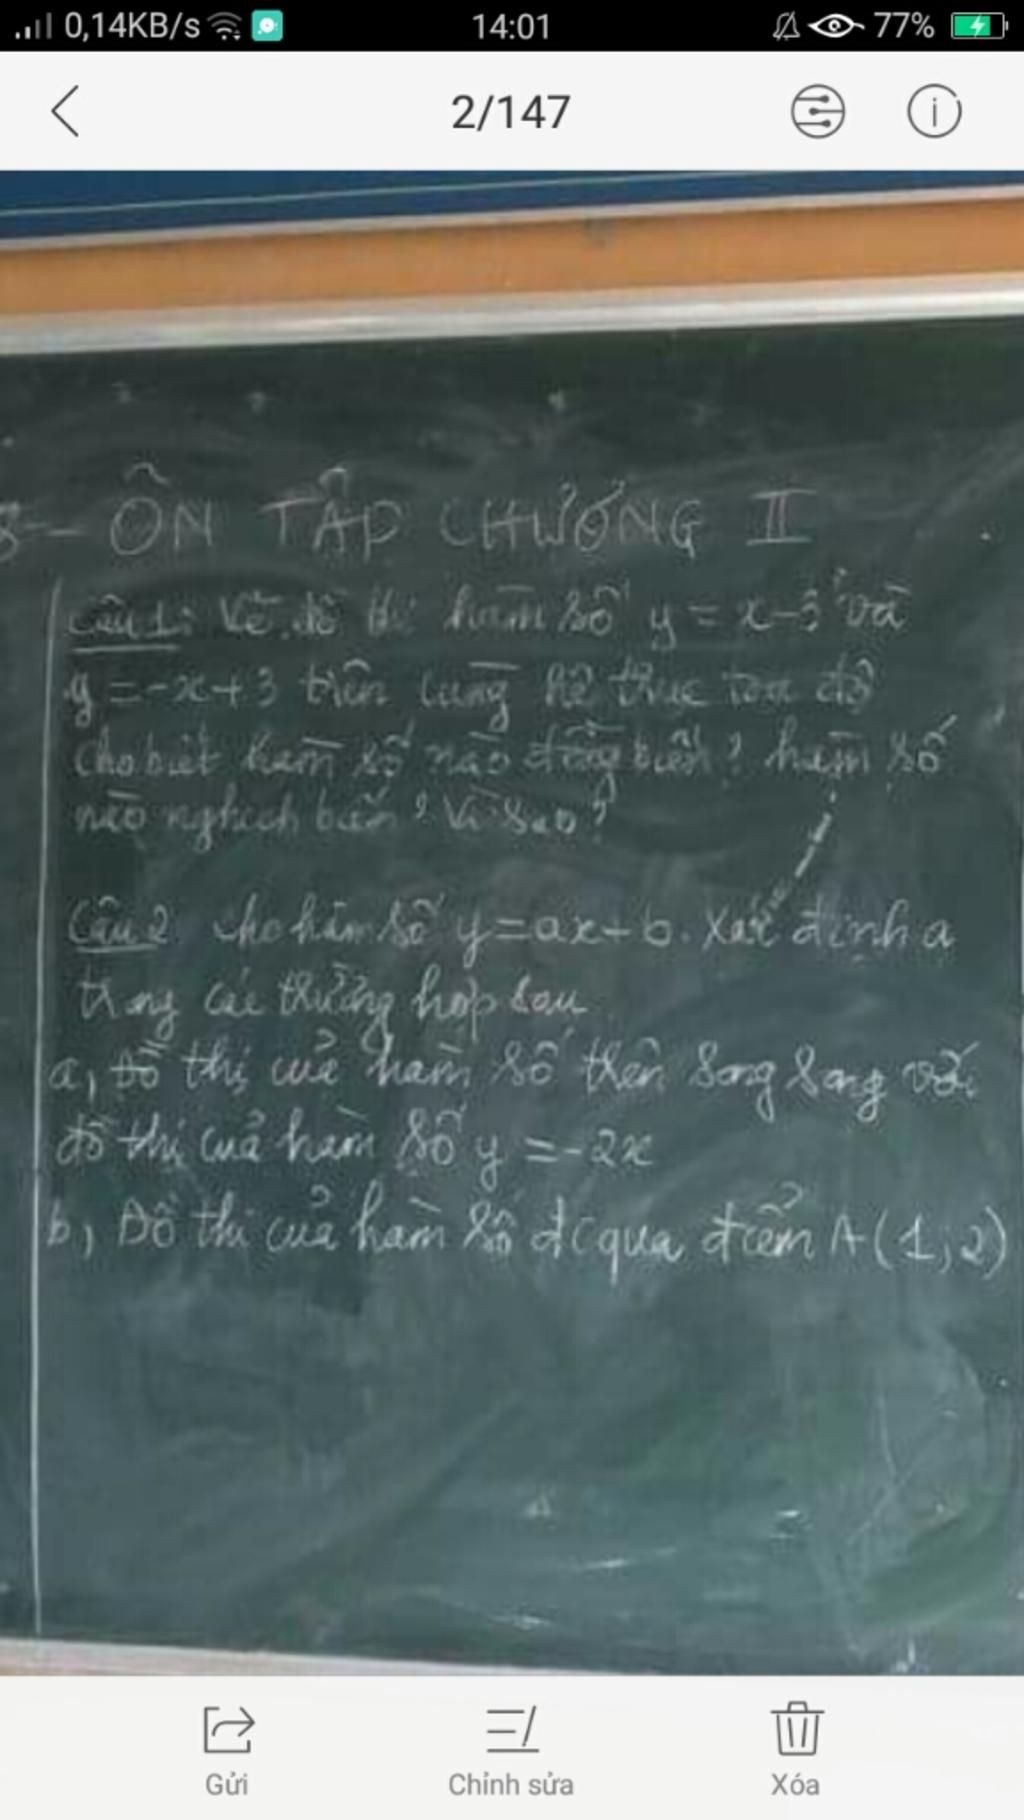 0,14KB/s 14:01 77%
2/147
ÔN TẬP CHƯƠNG II
Câu 1: Vẽ đồ thị hàm số y = x-3 và
y = -x+3 trên cùng hệ trục toạ độ
Cho biết hàm số nào đồng biến? hàm số
nào nghịch biến? Vì sao?
Câu 2 cho hàm số y=ax+b. Xác định a
trong các trường hợp sau
a, Đồ thị của hàm số trên song song với
đồ thị của hàm số y = -2x
b, Đồ thị của hàm số đi qua điểm A(1;2)
Gửi Chỉnh sửa Xóa